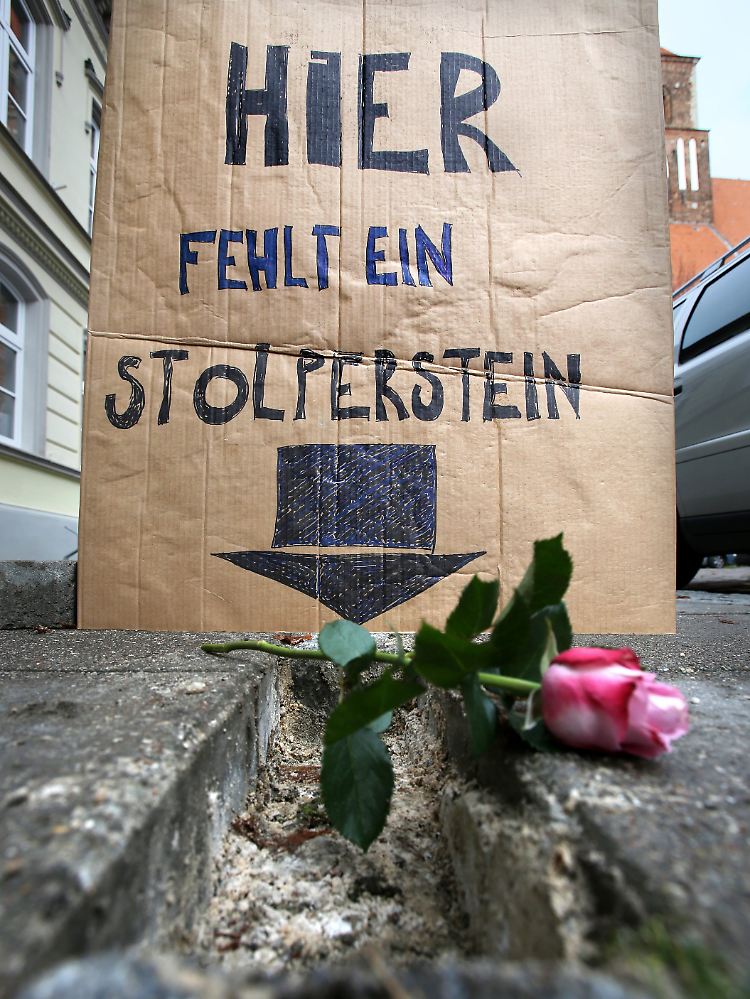 HIER
FEHLT EIN
STOLPERSTEIN